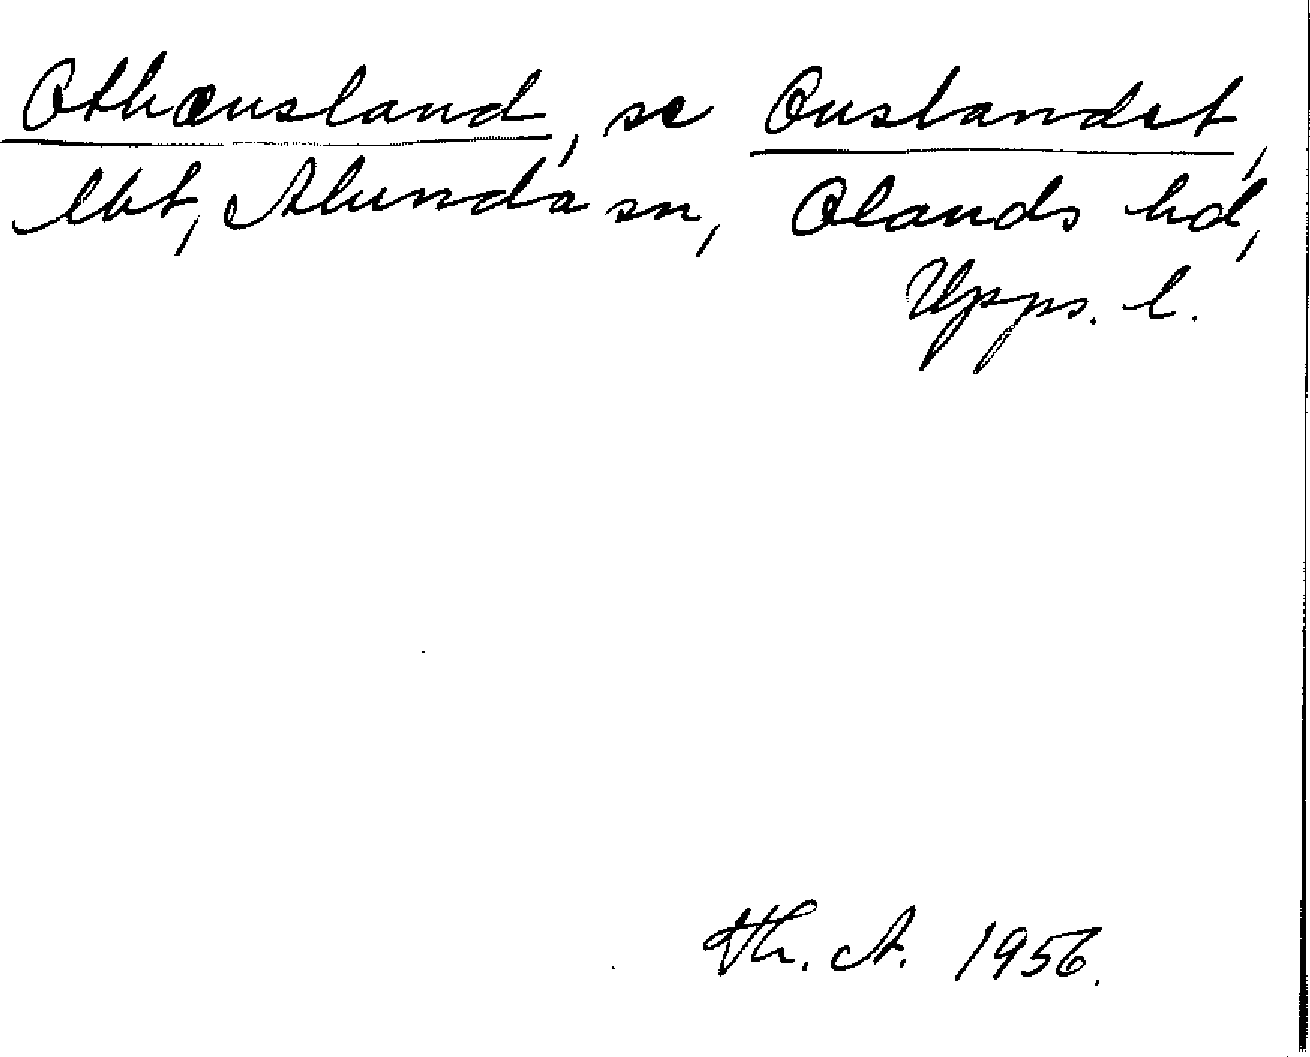 Othænsland, se Onslandet,
lbt, Alunda sn, Olands hd,
Upps. l.
Th. A. 1956.